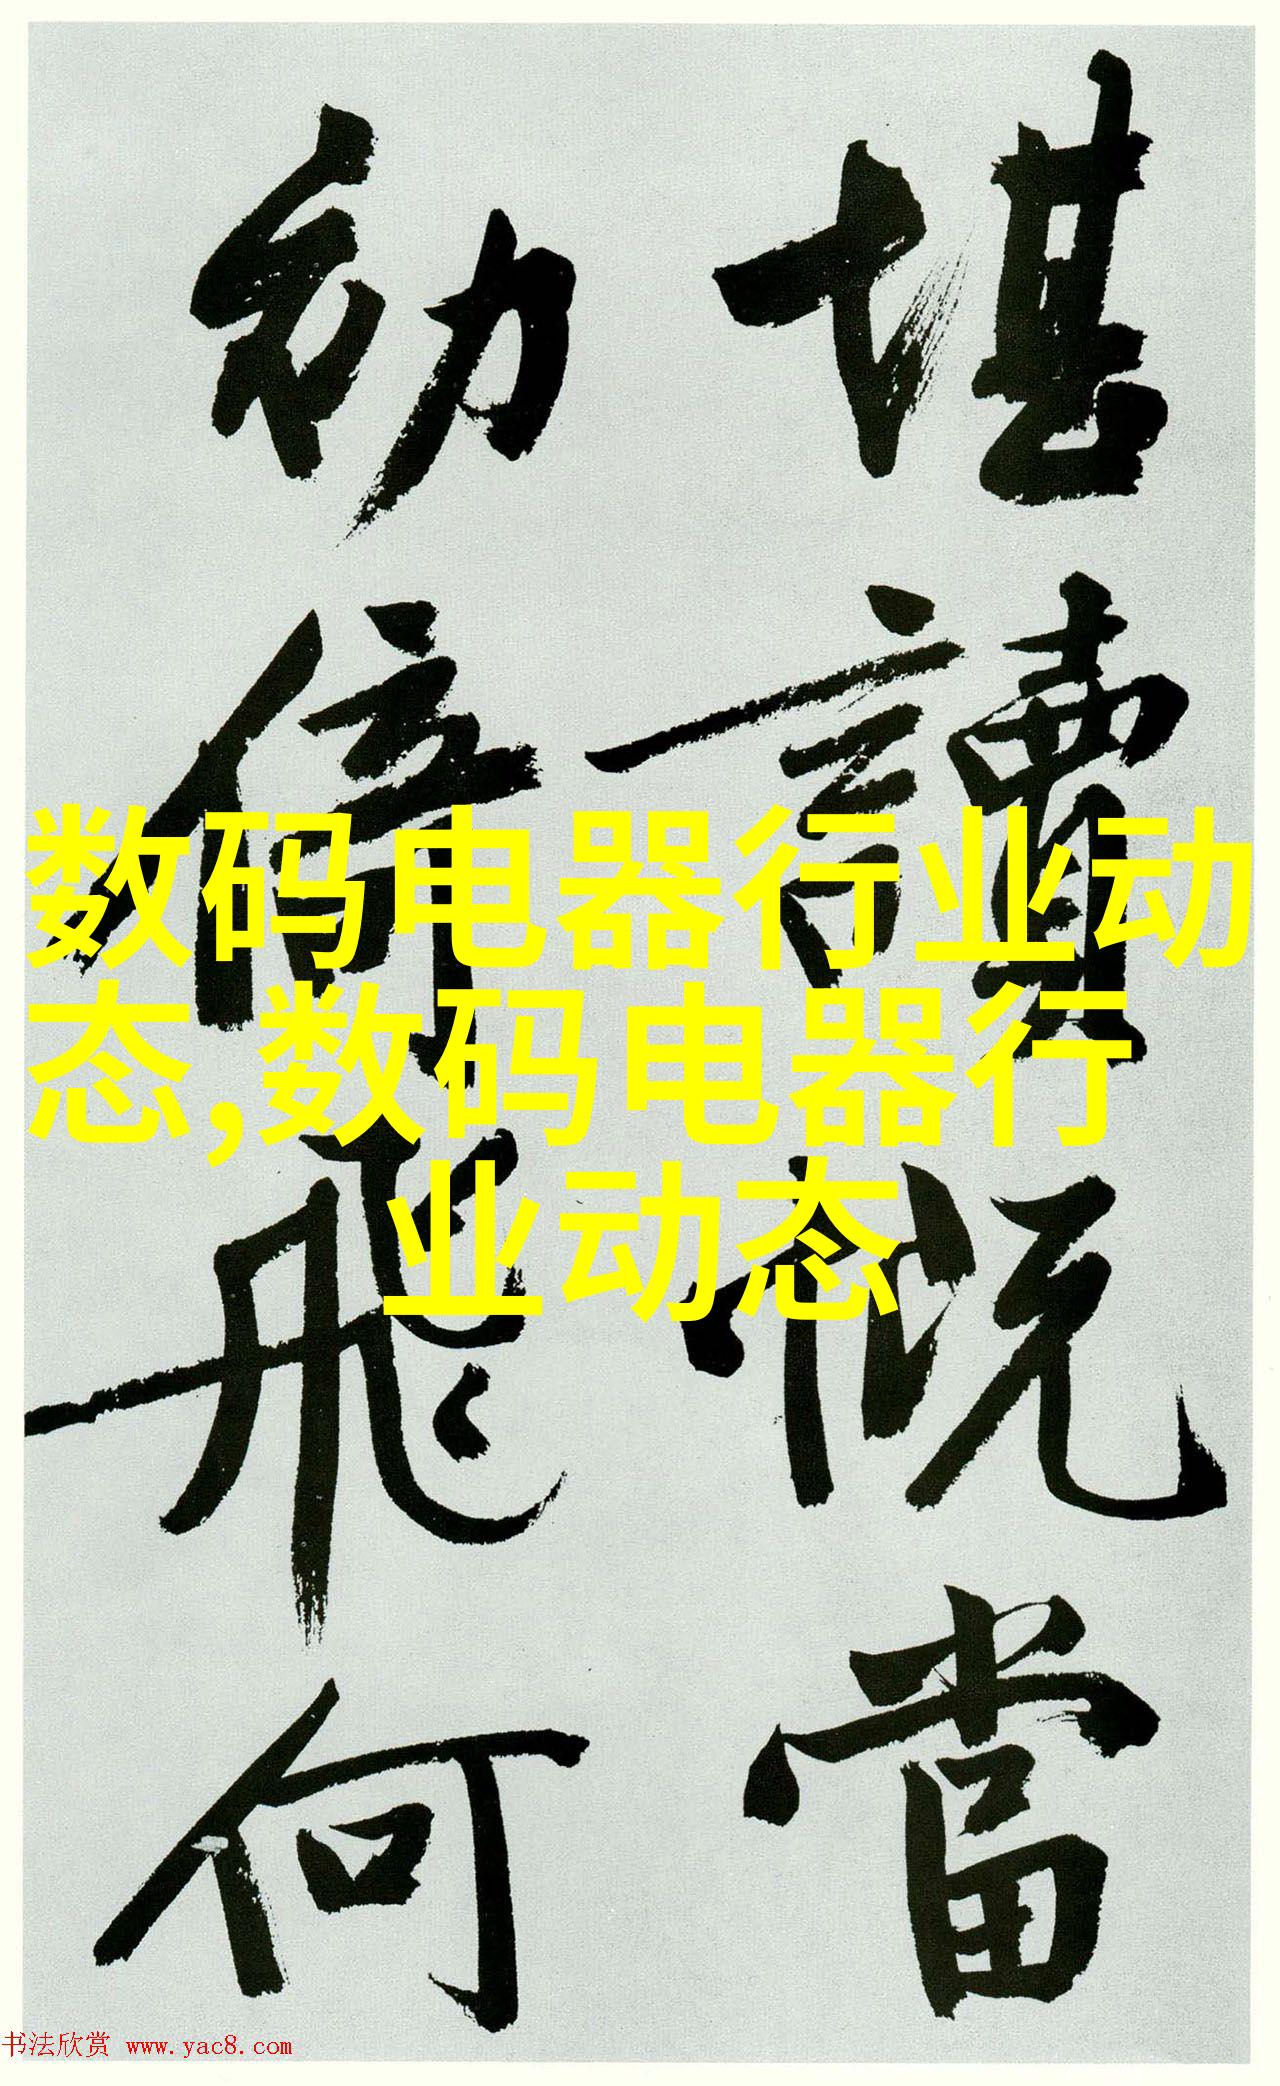 堪讀慨當
幼倚飛何
数码电器行业动
态,数码电器行
业动态
书法欣赏 www.yac8.com